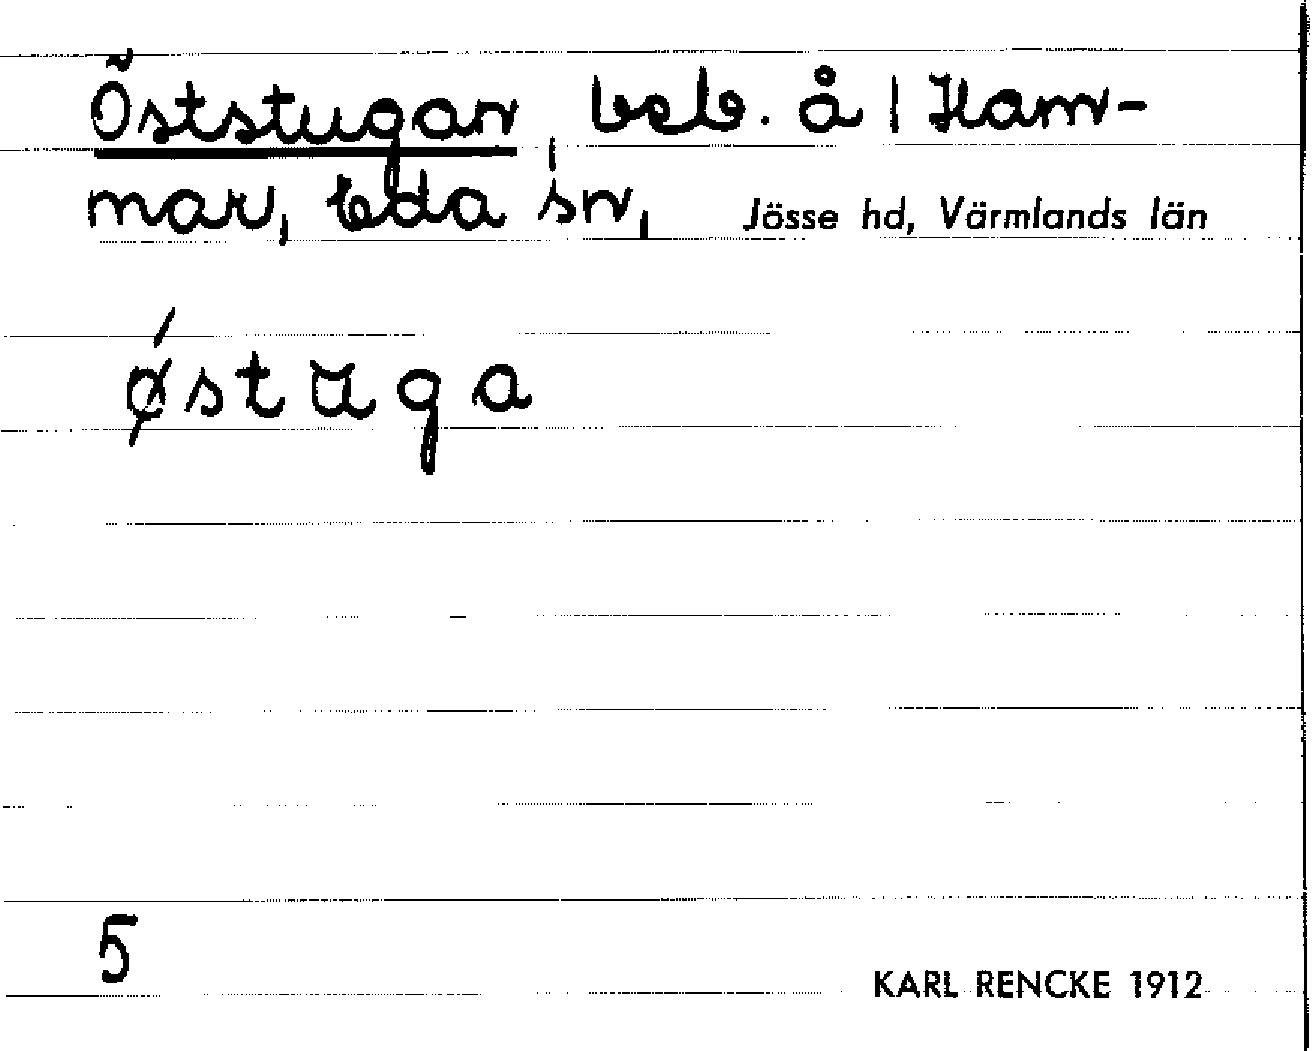 Öststugan, beb. å | Ham-
mar, Eda sn, Jösse hd, Värmlands län
ǿstuga
5
KARL RENCKE 1912